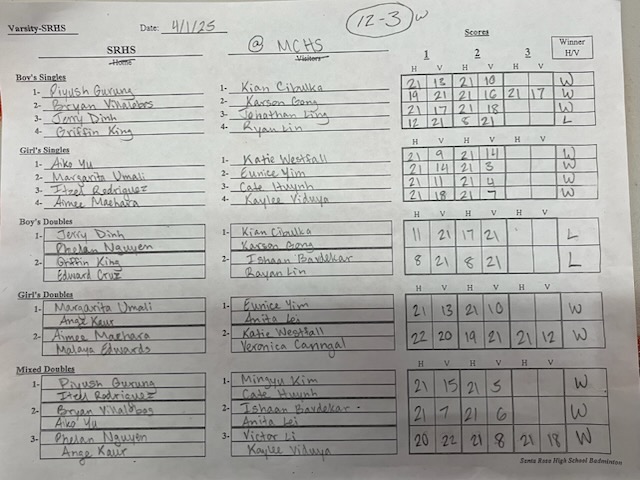 Varsity-SRHS Date: 4/1/25 12-3 W
SRHS @ MCHS Scores
Home Visitors 1 2 3 Winner H/V
H V H V H V
Boy's Singles
1- Piyush Gurung 1- Kian Cibulka 21 13 21 10 W
2- Bryan Villalobos 2- Karson Gong 19 21 21 16 21 17 W
3- Jerry Dinh 3- Johathan Ling 21 17 21 18 W
4- Griffin King 4- Ryan Lin 12 21 8 21 L
Girl's Singles H V H V H V
1- Aiko Yu 1- Katie Westfall 21 9 21 14 W
2- Margarita Umali 2- Eunice Yim 21 14 21 3 W
3- Itzel Rodriguez 3- Cate Huynh 21 11 21 4 W
4- Aimee Maehara 4- Kaylee Viduya 21 18 21 7 W
Boy's Doubles H V H V H V
1- Jerry Dinh 1- Kian Cibulka 11 21 17 21 L
Phelan Nguyen Karson Gong
2- Griffin King 2- Ishaan Bavdekar 8 21 8 21 L
Edward Cruz Rayan Lin
Girl's Doubles H V H V H V
1- Margarita Umali 1- Eunice Yim 21 13 21 10 W
Ange Kaur Anita Lei
2- Aimee Maehara 2- Katie Westfall 22 20 19 21 21 12 W
Malaya Edwards Veronica
Mixed Doubles H V H V H V
1- Piyush Gurung 1- Mingyu Kim 21 15 21 5 W
Itzel Rodriguez Cate Huynh
2- Bryan Villalobos 2- Ishaan Bavdekar 21 7 21 6 W
Aiko Yu Anita Lei
3- Phelan Nguyen 3- Victor Li 20 22 21 8 21 18 W
Ange Kaur Kaylee Viduya
Santa Rosa High School Badminton